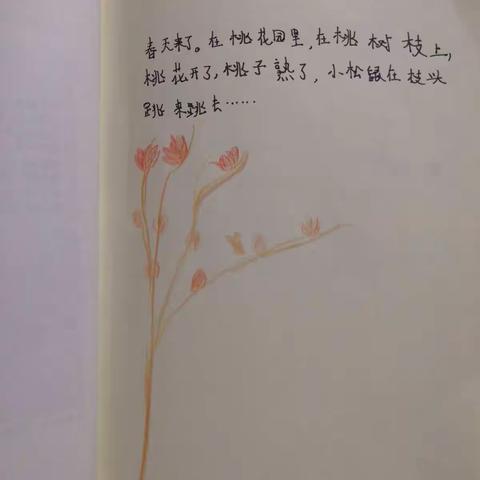 春天来了。在桃花园里,在桃树枝上,
桃花开了,桃子熟了,小松鼠在枝头
跳来跳去……